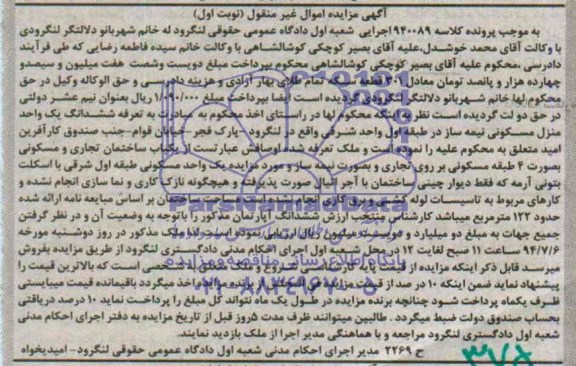 آگهی مزایده اموال غیر منقول (نوبت اول)
به موجب پرونده کلاسه ۹۴۰۰۸۹ اجرایی شعبه اول دادگاه عمومی حقوقی لنگرود له خانم شهربانو دلالتگر لنگرودی
با وکالت آقای محمد خوشدل،علیه آقای بصیر کوچکی کوشالشاهی با وکالت خانم سیده فاطمه رضایی که طی فرآیند
دادرسی ،محکوم علیه آقای بصیر کوچکی کوشالشاهی محکوم بپرداخت مبلغ دویست وشصت هفت میلیون و سیصدو
چهارده هزار و پانصد تومان معادل ۳۰۰ قطعه سکه تمام طلای بهار آزادی و هزینه دادرسی و حق الوکاله وکیل در حق
محکوم لها خانم شهربانو دلالتگر لنگرودی گردیده است ایضا بپرداخت مبلغ ریال بعنوان نیم عشر دولتی
در حق دولت گردیده است نظر به اینکه محکوم لها در راستای اخذ محکوم به مبادرت به تعرفه ششدانگ یک واحد
منزل مسکونی نیمه ساز در طبقه اول واحد شرقی واقع در لنگرود -پارک فجر خیابان قوام-جنب صندوق کارآفرین
امید متعلق به محکوم علیه را نموده است و ملک تعرفه شده اوصافش عبارتست از یکباب ساختمان تجاری و مسکونی
بصورت ۴ طبقه مسکونی بر روی تجاری و بصورت نیمه ساز و مورد مزایده یک واحد مسکونی طبقه اول شرقی با اسکلت
بتونی آرمه که فقط دیوار چینی ساختمان با آجر سفال صورت پذیرفته و هیچگونه نازک کاری و نما سازی انجام نشده و
کارهای مربوط به تاسیسات لوله کشی و برق کاری ساختمان بر اساس مبایعه نامه ارائه شده
حدود ۱۲۲ مترمربع میباشد کارشناس منتخب ارزش ششدانگ آپارتمان مذکور را باتوجه به وضعیت آن و در نظر گرفتن
جمیع جهات به مبلغ دو میلیارد و میلیون ریال ارزیابی نموده است لذا ملک مذکور در روز دوشنبه مورخه
۹۴/۷/۶ ساعت ۱۱ صبح لغایت ۱۲ در محل شعبه اول اجرای احکام مدنی دادگستری لنگرود از طریق مزایده بفروش
میرسد قابل ذکر اینکه مزایده از قیمت پایه کارشناسی شروع و ملک متعلق به شخصی است که بالاترین قیمت را
پیشنهاد نماید ضمن اینکه ۱۰ در صد از قیمت مزایده فی المجلس از برنده مزایده اخذ میگردد باقیمانده قیمت میبایستی
ظرف یکماه پرداخت شود چنانچه برنده مزایده در طول یک ماه نتواند کل مبلغ را پرداخت نماید ۱۰ درصد دریافتی
بحساب صندوق دولت ضبط میگردد . طالبین میتوانند ظرف مدت ۵روز قبل از تاریخ مزایده به دفتر اجرای احکام مدنی
شعبه اول دادگستری لنگرود مراجعه و با هماهنگی مدیر اجرا از ملک بازدید نمایند.
ح ۲۲۶۹ مدیر اجرای احکام مدنی شعبه اول دادگاه عمومی حقوقی لنگرود- امیدیخواه
ParsNamadData
پایگاه اطلاع رسانی مناقصه و مزایده
۰۲۱-۸۸۳۴۹۶۷۰-۵
۳۷۸